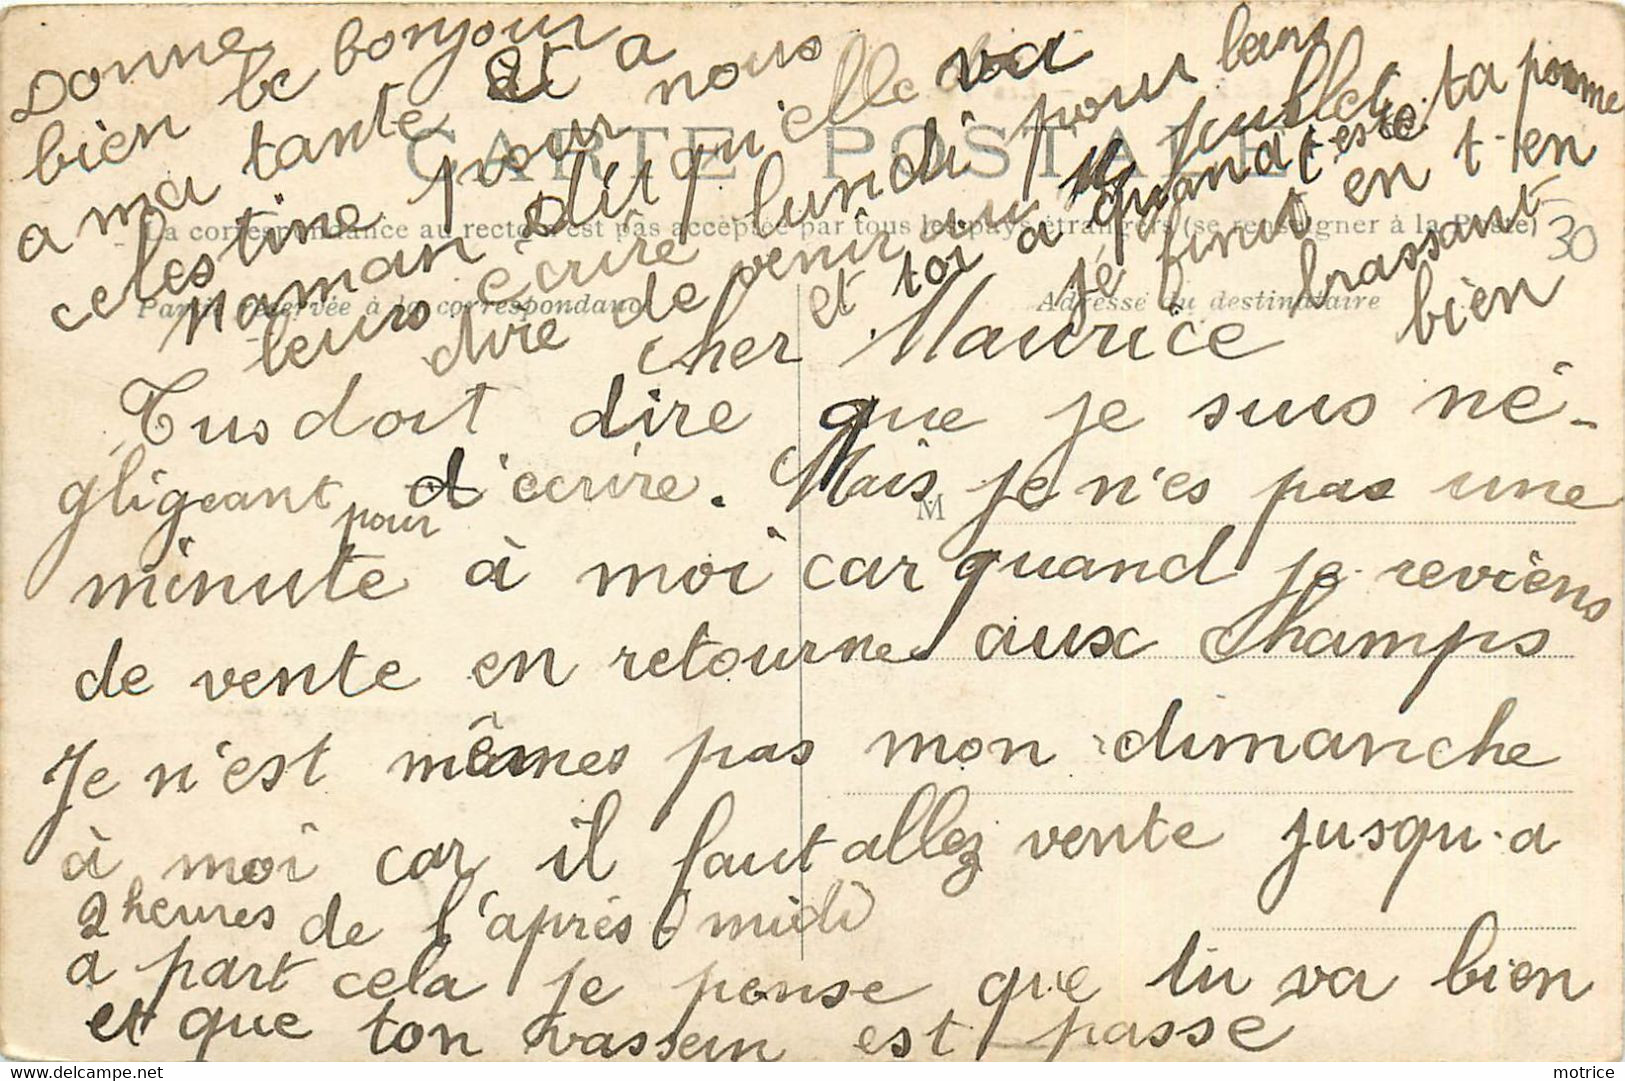 CARTE POSTALE
La correspondance au recto n'est pas acceptée par tous les pays étrangers (se renseigner à la Poste)
Partie réservée à la correspondance
Adresse du destinataire
M
30
cher Maurice
Tus doit dire que je suis né-
gligeant pour d'ecrire. Mais je n'es pas une
minute à moi car quand je reviens
de vente en retourne aux champs
Je n'est mêmes pas mon dimanche
à moi car il faut allez vente jusqu-a
2 heures de l'après-midi
a part cela je pense que tu va bien
et que ton vassein est passé
et toi a quand t-este ta pomme
je finit en t-en
brassant
bien
Donne
bien le bonjour
a ma tante et a
celestine pour nous
maman dit qu'ielle va
leurs écrire lundi pour leurs
dire de venir au 14 juillet
motrice